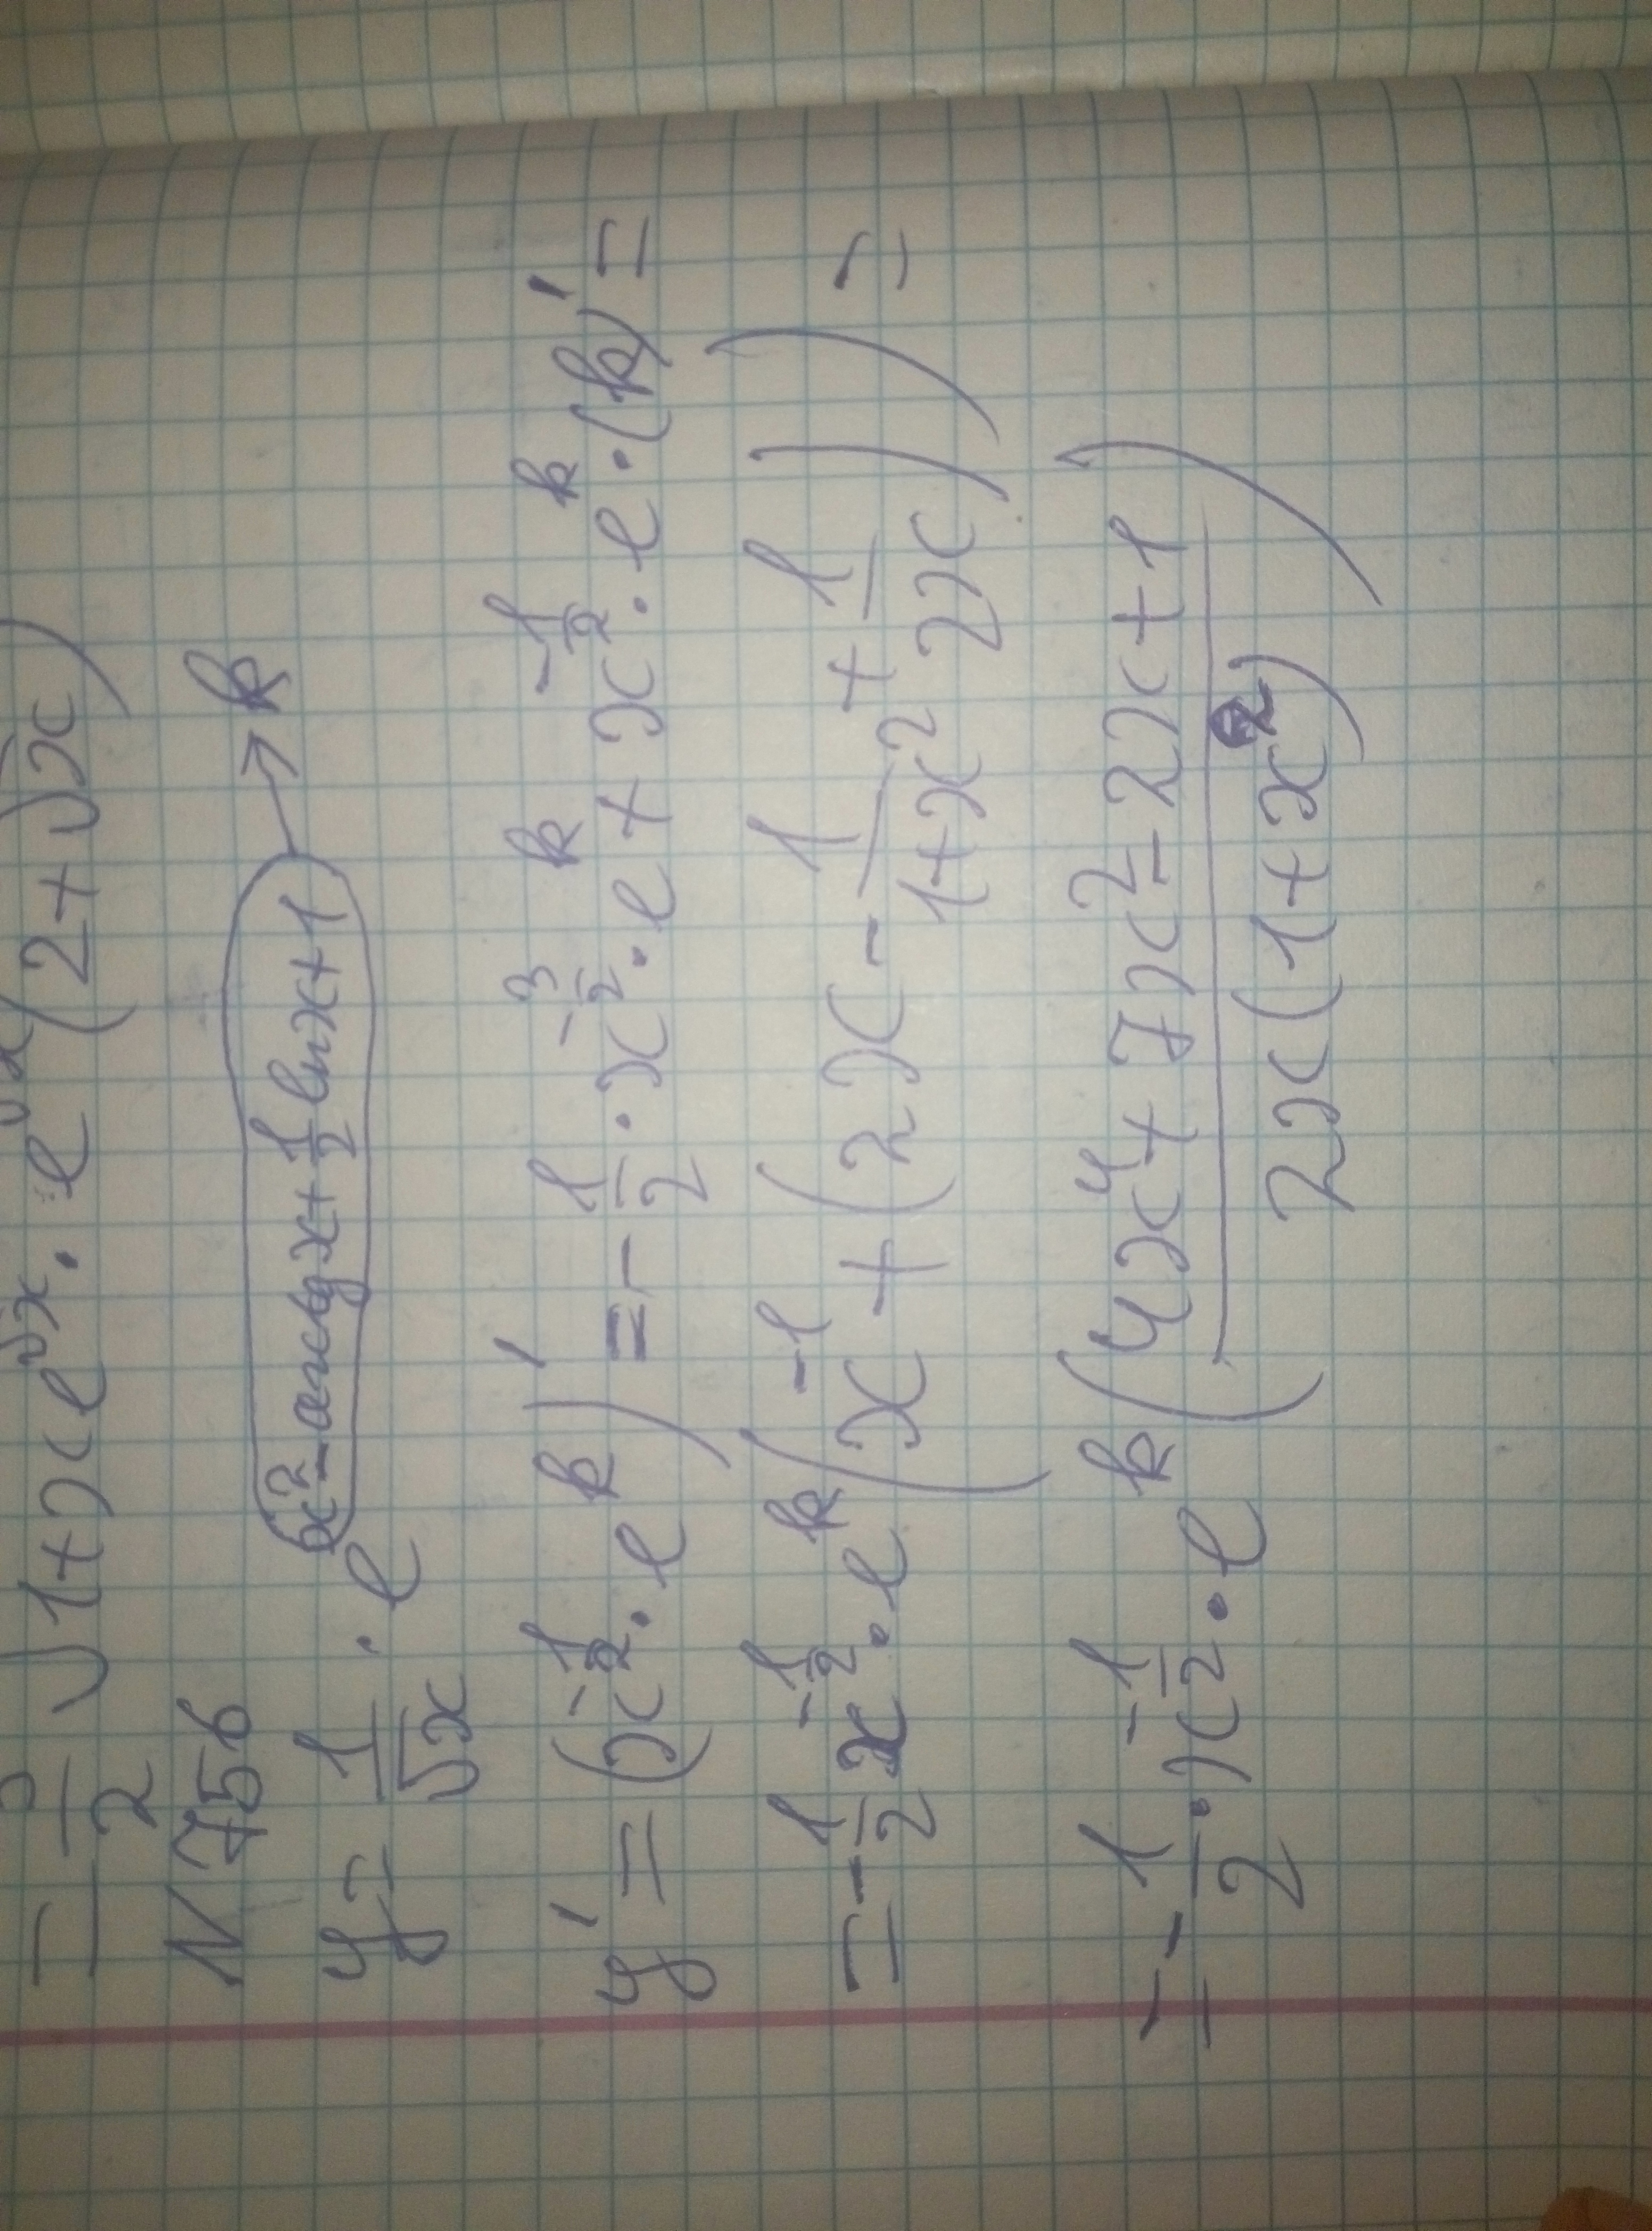 = —/2 √1+xe^√x · e^√x (2+√x)
N 756
y = 1/√x · e^(x²-arctgx+1/2 lnx+1) → k
y' = (x^(-1/2) · e^k)' = -1/2 · x^(-3/2) · e^k + x^(-1/2) · e^k · (k)' =
= -1/2 x^(-1/2) · e^k (x^(-1) + (2x - 1/(1+x²) + 1/(2x))) =
= -1/2 · x^(-1/2) · e^k ((4x⁴ + 7x² - 2x + 1)/(2x(1+x²)))